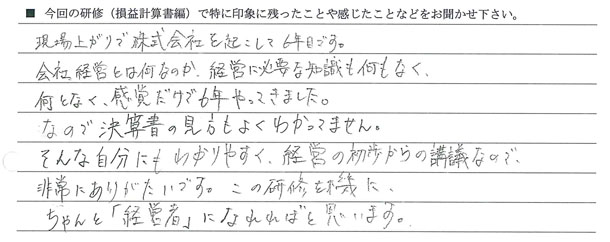 ■ 今回の研修（損益計算書編）で特に印象に残ったことや感じたことなどをお聞かせ下さい。
現場上がりで株式会社を起こして6年目です。
会社経営とは何なのか、経営に必要な知識も何もなく、
何となく、感覚だけで6年やってきました。
なので決算書の見方もよくわかってません。
そんな自分にもわかりやすく、経営の初歩からの講議なので、
非常にありがたいです。この研修を機に、
ちゃんと「経営者」になれればと思います。